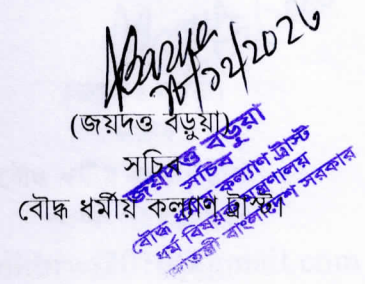 Barua
(জয়দত্ত বড়ুয়া)
সচিব
বৌদ্ধ ধর্মীয় কল্যাণ ট্রাস্ট।
জয়দত্ত বড়ুয়া
সচিব
বৌদ্ধ ধর্মীয় কল্যাণ ট্রাস্ট
ধর্ম বিষয়ক মন্ত্রণালয়
বাংলাদেশ সরকার